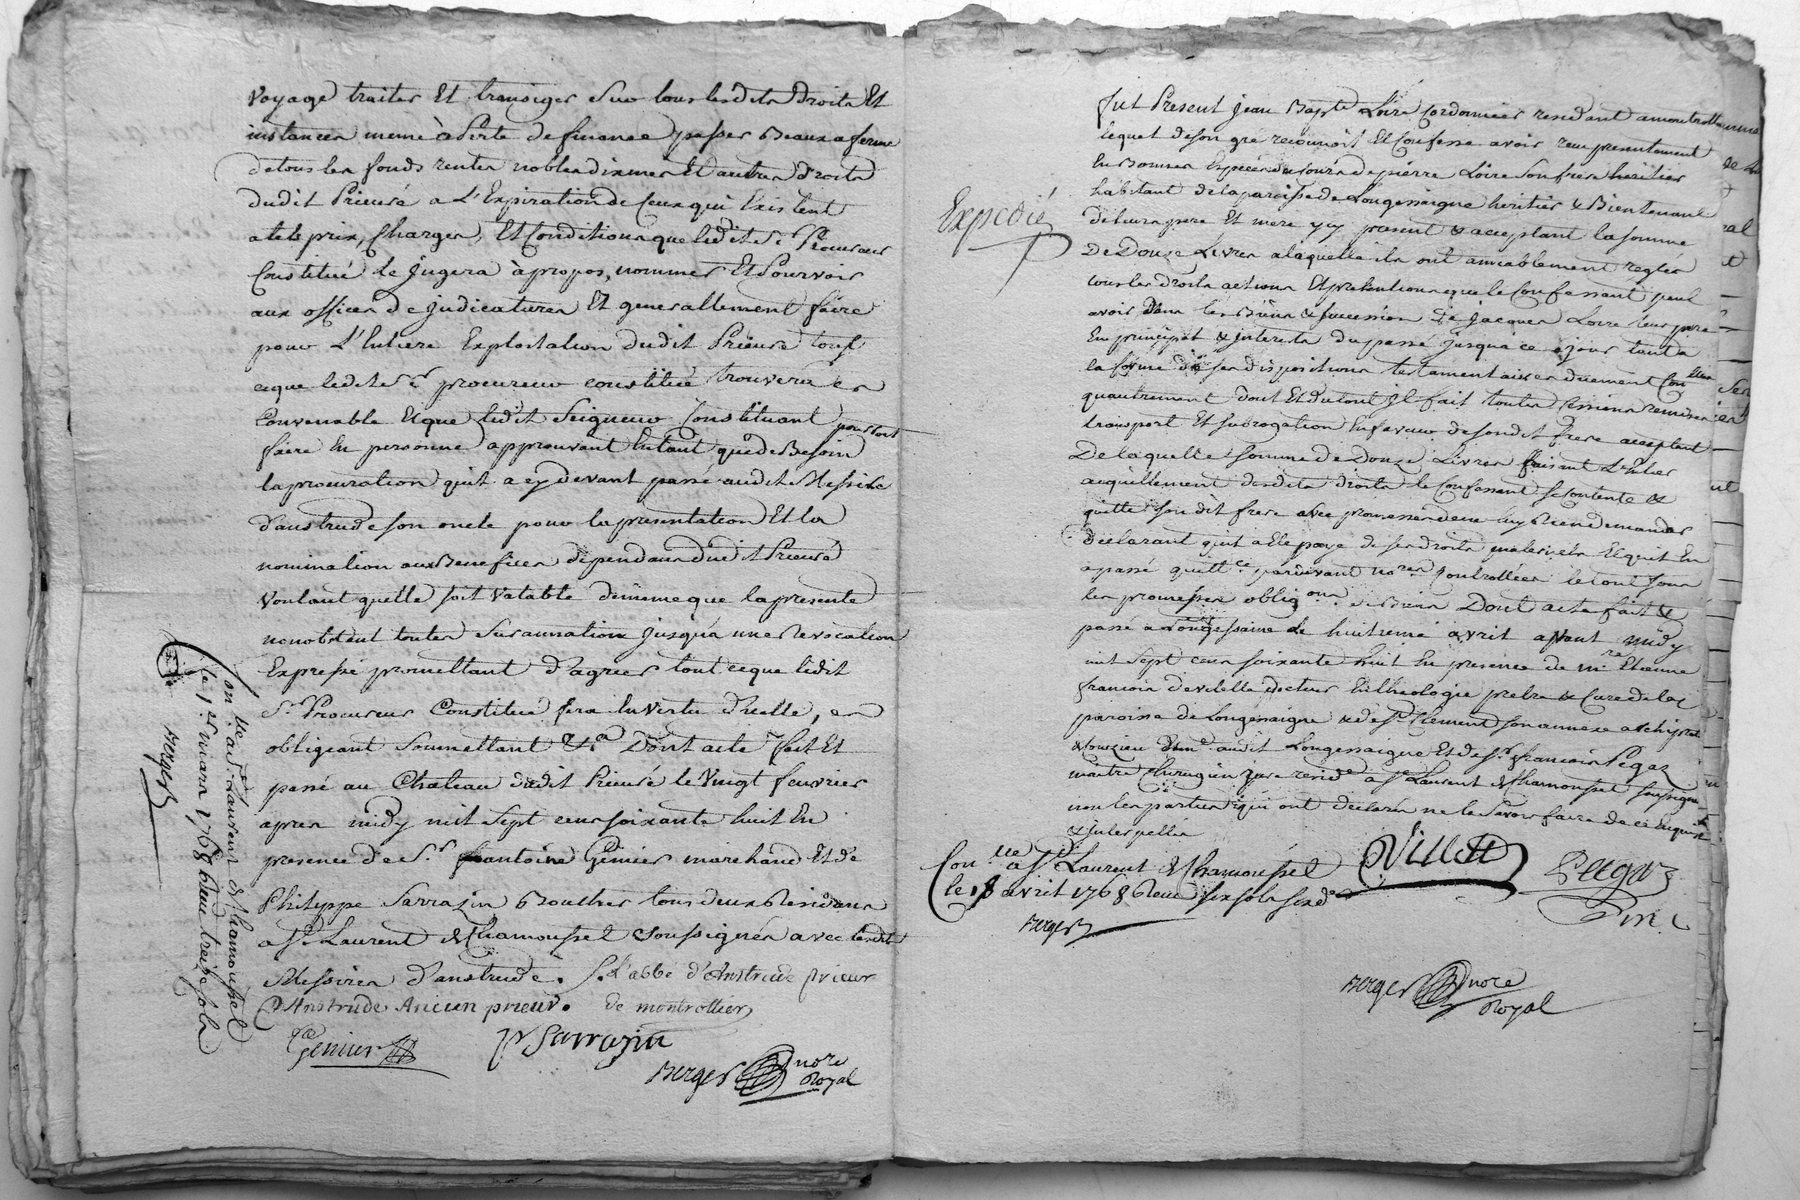 Voyage traiter Et transiger Sur tous lesdits droits Et
instances meme à Perte de finance passer Beaux a ferme
de tous les fonds rentes nobles dixmes Et autres droits
dudit Prieuré a L'Expiration de Ceux qui Existent
a tels prix, Charges, Et Conditions que ledit Sr. Procureur
Constitué le Jugera à propos, nommer Et Pourvoir
aux offices de judicatures Et generallement faire
pour L'Entiere Exploitation dudit Prieuré tout
ceque ledit Sr. procureur constitué trouvera
Convenable Et que ledit Seigneur Constituant pourroit
faire En personne approuvant Entant que de Besoin
la procuration qu'il a cy devant passé audit Messire
d'anstrude son oncle pour la presentation Et la
nomination aux Benefices dependans dudit Prieuré
Voulant quelle soit Valable de meme que la presente
nonobstant toutes Surannation jusqu'a une Revocation
Expresse promettant d'agreer tout ceque ledit
Sr. Procureur Constitué fera En Vertu d'icelle,
obligeant Soumettant &a Dont acte fait Et
passé au Chateau dudit Prieuré le Vingt feuvrier
apres midy mil Sept cens soixante huit En
presence de Sr. antoine Genier marchand Et de
Philippe Sarrazin Boucher tous deux Residans
a St. Laurent de Chamousset Soussignés avec lesdits
Messires d'anstrude. L'abbé d'Anstrude prieur
D'Anstrude Ancien prieur. de montrottier
Genier
pr Sarrazin
Berger nore
Royal
Con. lle a St. Laurent de Chamousset
le 1er mars 1768 Reçu treize sols
Berger
Expedié
fut Present Jean Bapte Loire Cordonnier residant a montrottier
lequel de son gré reconnoit Et Confesse avoir reçu presentement
En Bonnes Especes du cours de pierre Loire Son frere heritier
habitant de la paroisse de Longessaigne heritier & Bientenant
de leurs pere Et mere icy present & acceptant la somme
De Douze Livres a laquelle ils ont amiablement reglés
tous les droits actions Et pretentions que le Confessant peut
avoir dans les Biens & succession de jacques Loire leur pere
En principal & interets du passé jusqu'a ce jour tout a
la forme de ses dispositions testamentaires duement Con lleés
qu'autrement dont Et du tout Il fait toutes Cessions remises
transport Et subrogation En faveur de son dit frere acceptant
De laquelle somme de Douze Livres faisant L'entier
acquittement desdits droits le Confessant se Contente &
quitte son dit frere avec promesse de ne luy Rien demander
declarant qu'il a Eté payé de ses droits maternels Et qu'il En
a passé quittce. pardevant nores Controllées le tout sous
les promesses obligons. de Biens Dont acte fait &
passé a Longessaigne le huitieme avril apvant midy
mil Sept cens soixante huit En presence de mre Etienne
francois de villette docteur En theologie pretre & Curé de la
paroisse de Longessaigne & de St. Clement son annexe archipretre
de Courzieu demt. audit Longessaigne Et de Sr. francois Pegaz
maitre Chirugien juré residt a St. Laurent de Chamousset soussignés
non les parties qui ont declarés ne le Savoir faire de ce Enquis
& interpellés
Con lle a St. Laurent de Chamousset
le 18 avril 1768 Reçu six sols six ds
Berger
Villette
Pegaz
Berger nore
Royal